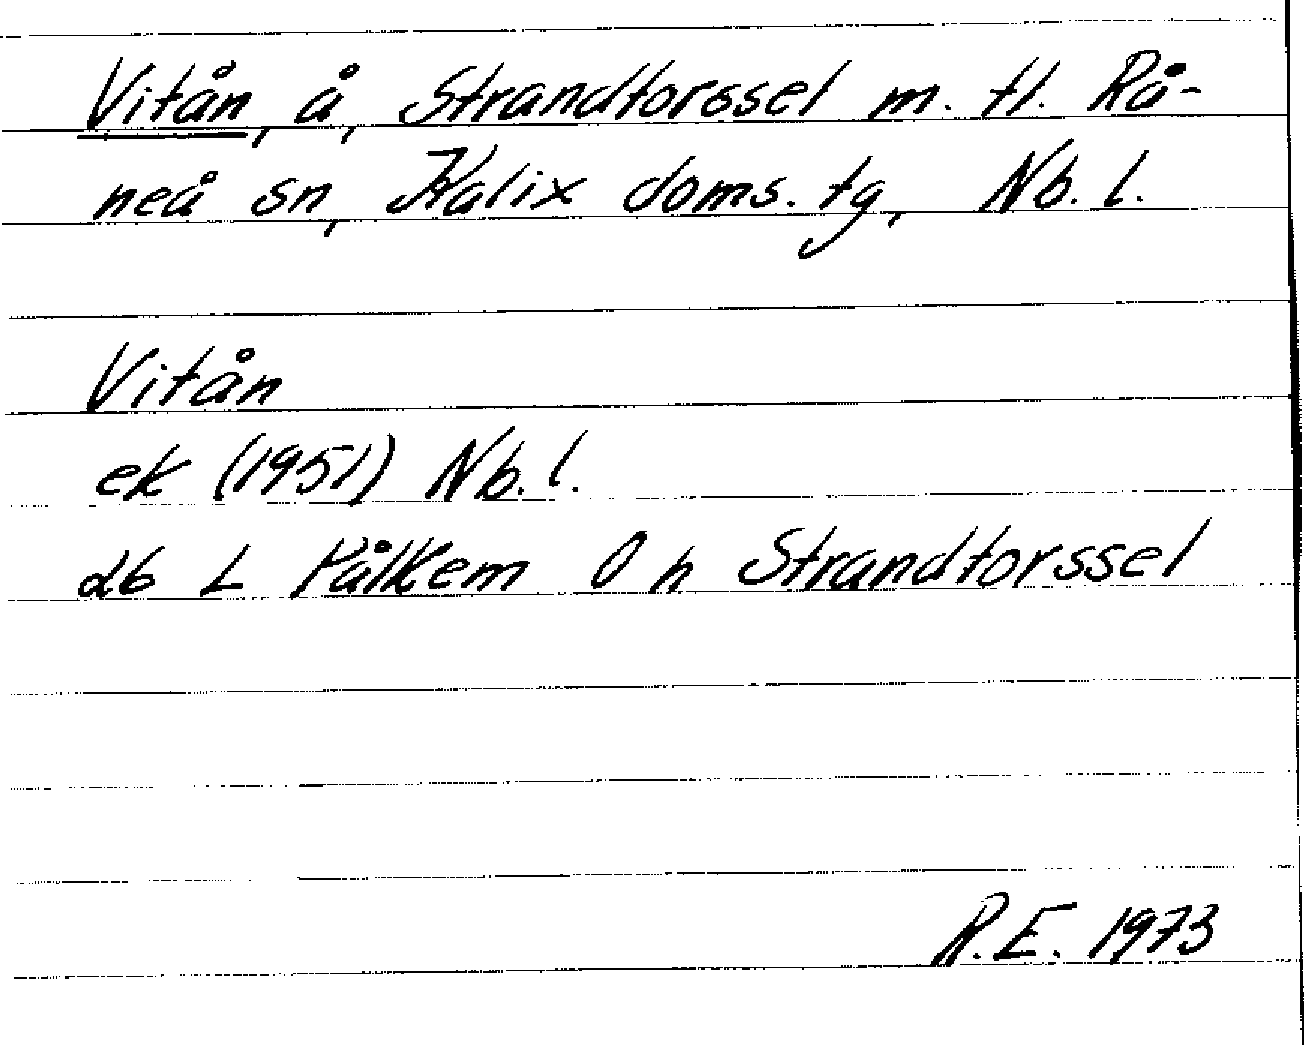 Vitån, å, Strandtorssel m. fl. Rå-
neå sn, Kalix doms. tg, Nb. l.
Vitån
ek (1951) Nb. l.
26 L Pålkem 0 h Strandtorssel
R.E. 1973